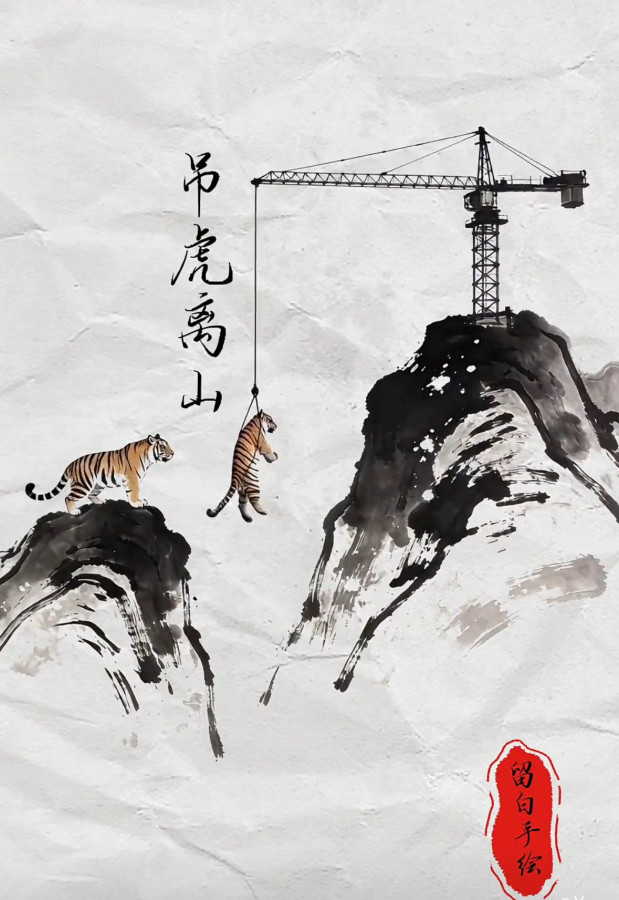 吊虎离山
留白手绘